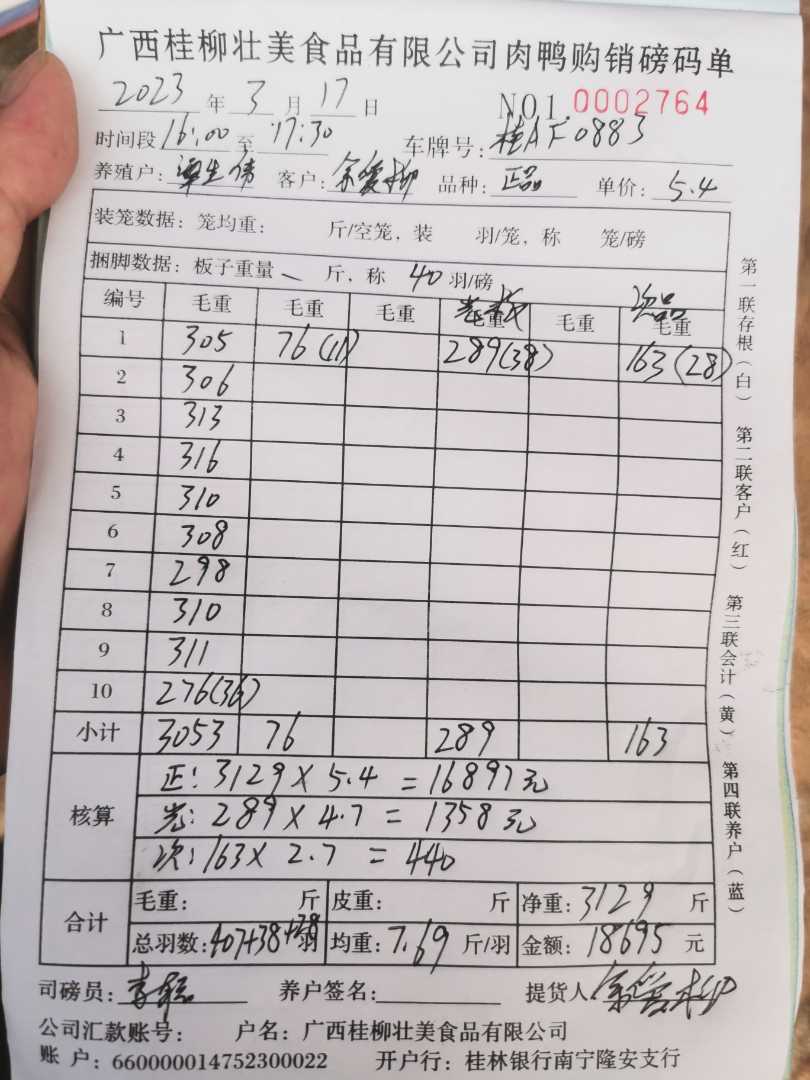 广西桂柳壮美食品有限公司肉鸭购销磅码单
2023 年 3 月 17 日 NO1 0002764
时间段 16:00 至 17:30 车牌号: 桂AF0883
养殖户: 客户: 品种: 正品 单价: 5.4
装笼数据: 笼均重: 斤/空笼, 装 羽/笼, 称 笼/磅
捆脚数据: 板子重量 斤, 称 40 羽/磅
编号 毛重 毛重 毛重 毛重 毛重 次品 毛重
1 305 76(11) 289(38) 163(28)
2 306
3 313
4 316
5 310
6 308
7 298
8 310
9 311
10 276(36)
小计 3053 76 289 163
核算 正: 3129 × 5.4 = 16897元
光: 289 × 4.7 = 1358元
次: 163 × 2.7 = 440
合计 毛重: 斤 皮重: 斤 净重: 3129 斤
总羽数: 407+38+28 羽 均重: 7.69 斤/羽 金额: 18695 元
司磅员: 养户签名: 提货人
公司汇款账号: 户名: 广西桂柳壮美食品有限公司
账 户: 660000014752300022 开户行: 桂林银行南宁隆安支行
第一联存根(白) 第二联客户(红) 第三联会计(黄) 第四联养户(蓝)